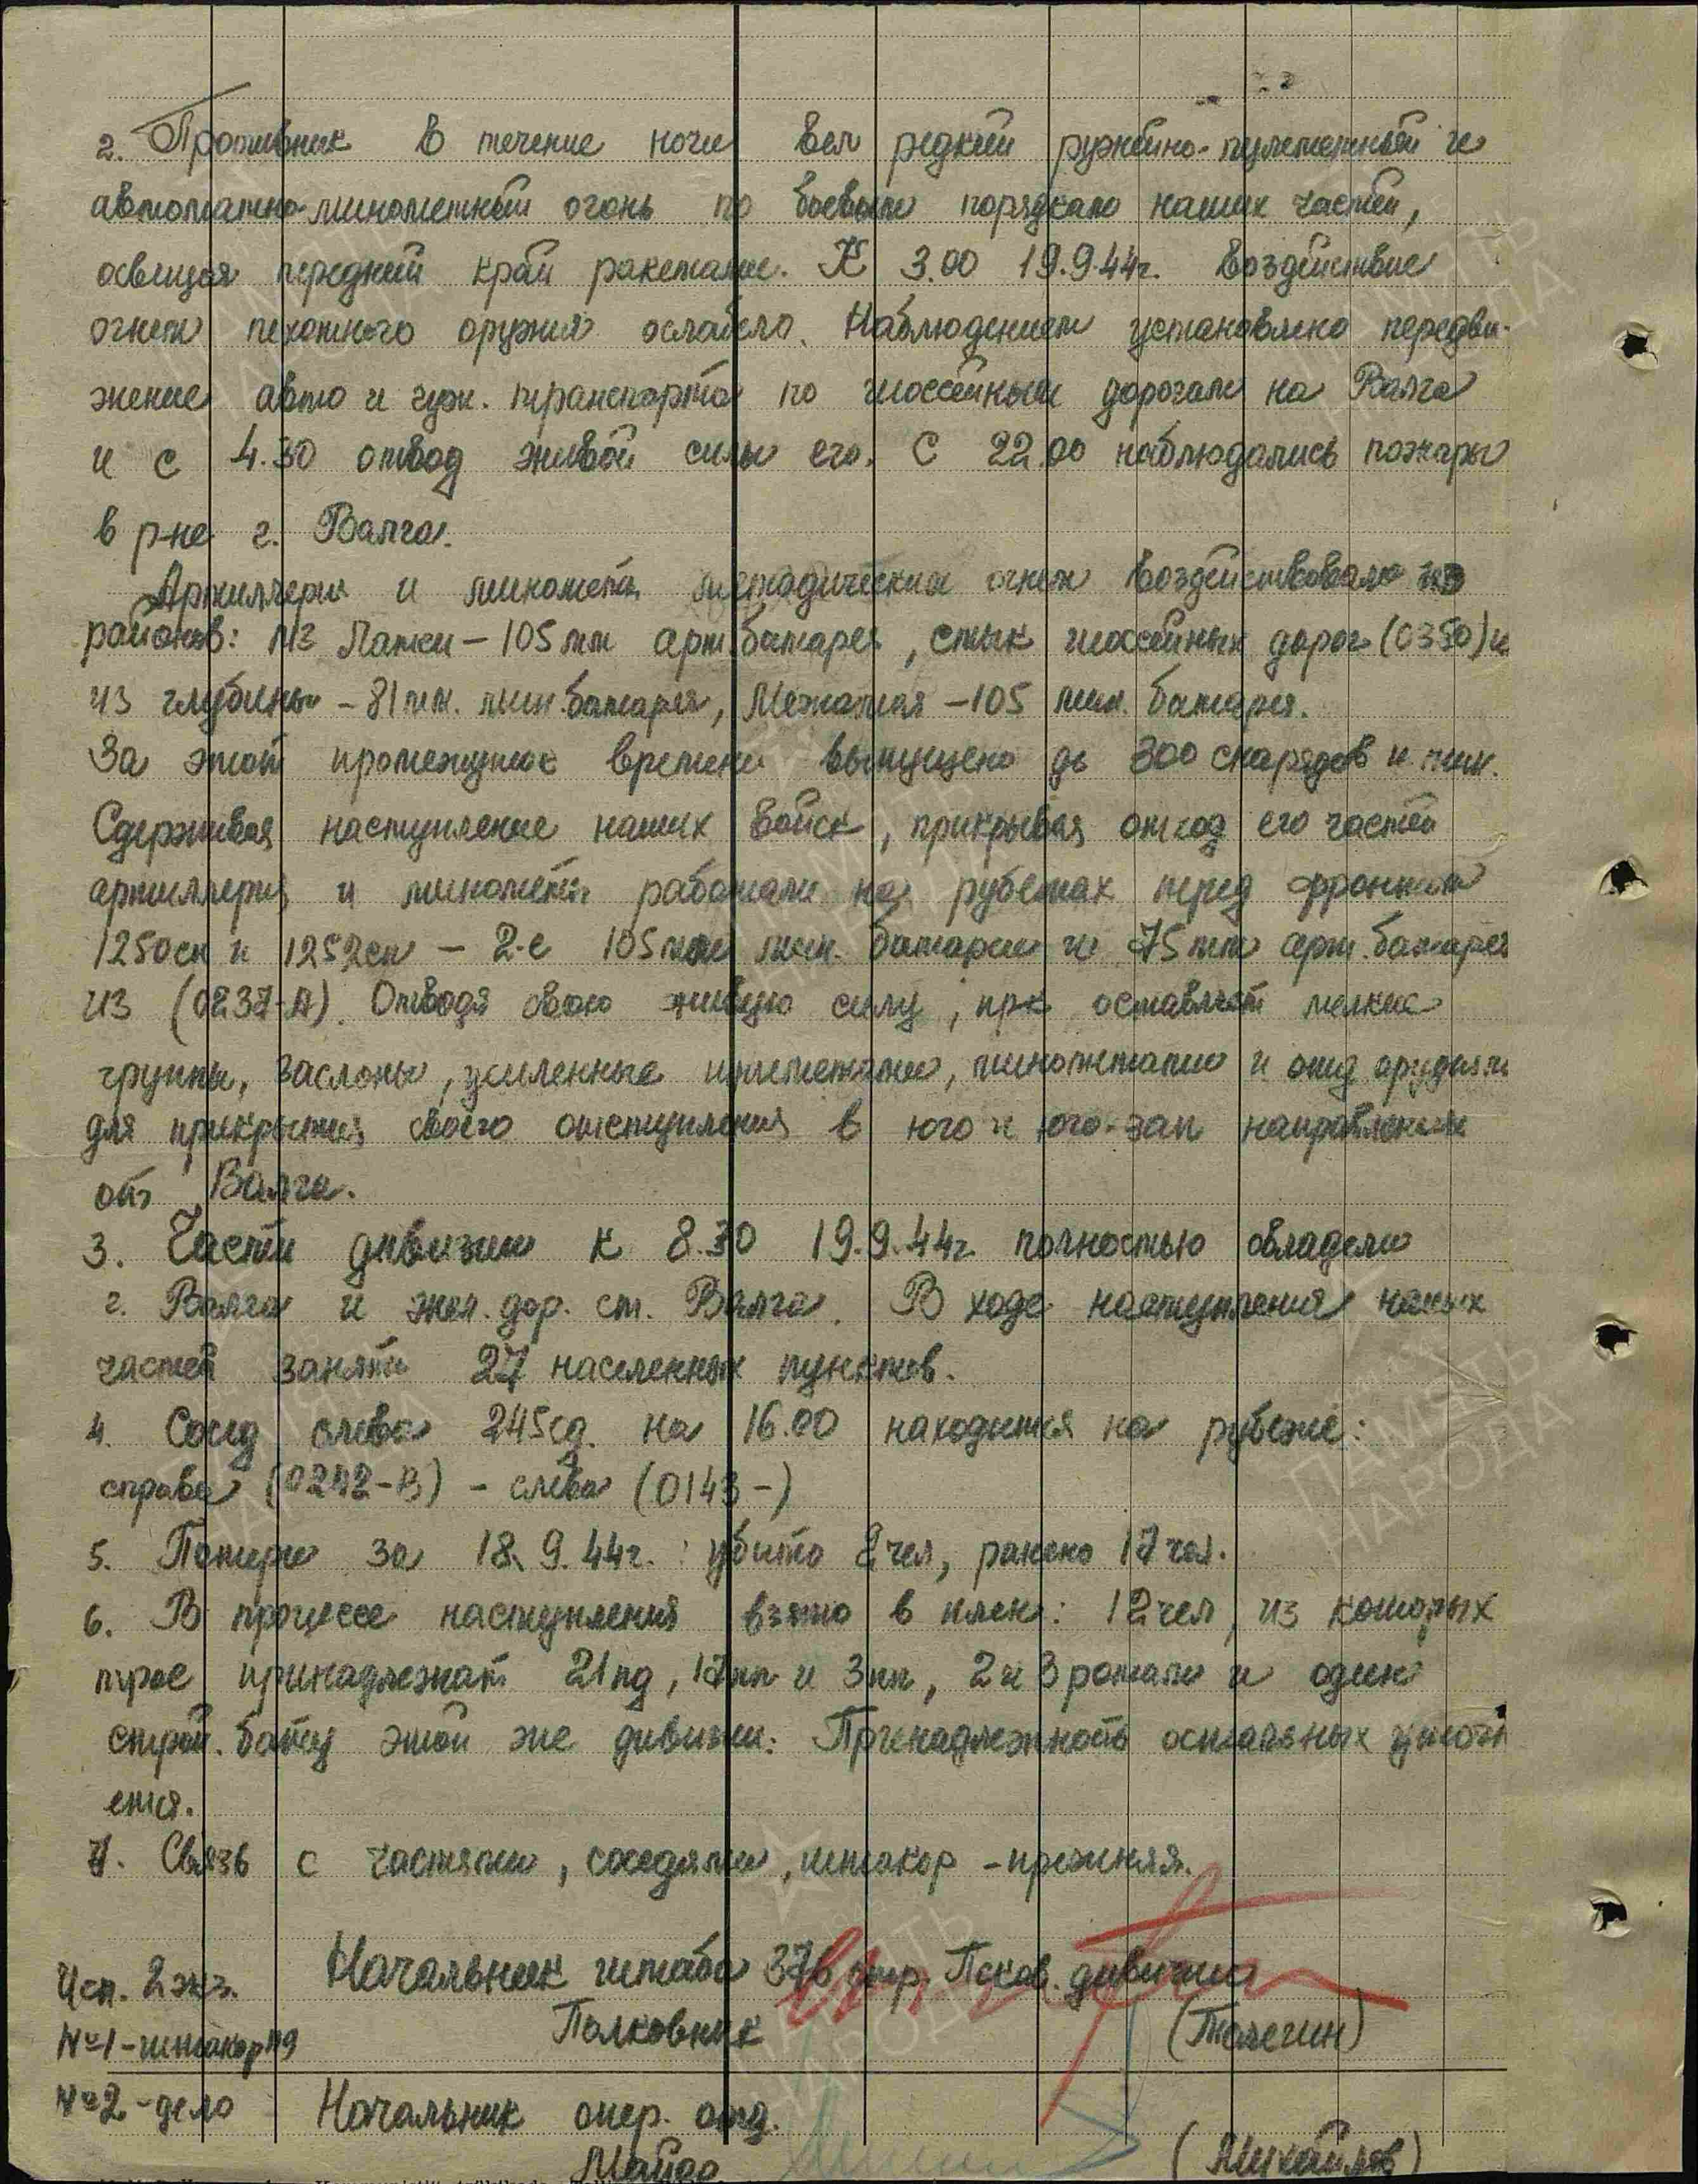 2. Противник в течение ночи вел редкий ружейно-пулеметный и
автоматно-минометный огонь по боевым порядкам наших частей,
освещая передний край ракетами. К 3.00 19.9.44г. воздействие
огнем пехотного оружия ослабело. Наблюдением установлено передви-
жение авто и гуж. транспорта по шоссейным дорогам на Валга
и с 4.30 отвод живой силы его. С 22.00 наблюдались пожары
в р-не г. Валга.
Артиллерия и минометы методическим огнем воздействовало из
районов: Латки - 105 мм арт. батарея, стык шоссейных дорог (0350) и
из глубины - 81 мм. мин. батарея, - 105 мин. батарея.
За этот промежуток времени выпущено до 300 снарядов и мин.
Сдерживая наступление наших войск, прикрывая отход его частей
артиллерия и минометы работали на рубежах перед фронтом
1250 сп и 1252 сп - 2-е 105 мм мин. батареи и 75 мм арт. батарея
из (0237-А). Отводя свою живую силу, пр-к оставляет мелкие
группы, заслоны, усиленные пулеметами, минометами и отд орудиями
для прикрытия своего отступления в юго и юго-зап направлении
от Валга.
3. Части дивизии к 8.30 19.9.44г. полностью овладели
г. Валга и жел. дор. ст. Валга. В ходе наступления наших
частей занято 27 населенных пунктов.
4. Сосед слева 245 сд. на 16.00 находится на рубеже:
справа (0242-В) - слева (0143-)
5. Потери за 18.9.44г.: убито 2 чел, ранено 17 чел.
6. В процессе наступления взято в плен: 12 чел, из которых
трое принадлежат 21 пд, и 3 пп, 2 и 3 ротам и один
строй. бату этой же дивизии. Принадлежность остальных уточн
ется.
7. Связь с частями, соседями, штакор - прежняя.
Начальник штаба 376 стр. Псков. дивизии
Полковник (Телегин)
Исп. 2 экз.
№1 - штакор 119
№2 - дело
Начальник опер. отд.
Майор (Михайлов)
ПАМЯТЬ
НАРОДА